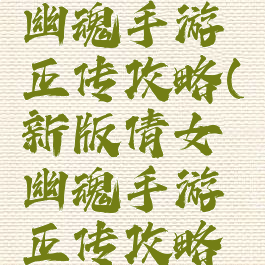 幽魂手游
正传攻略(
新版倩女
幽魂手游
正传攻略